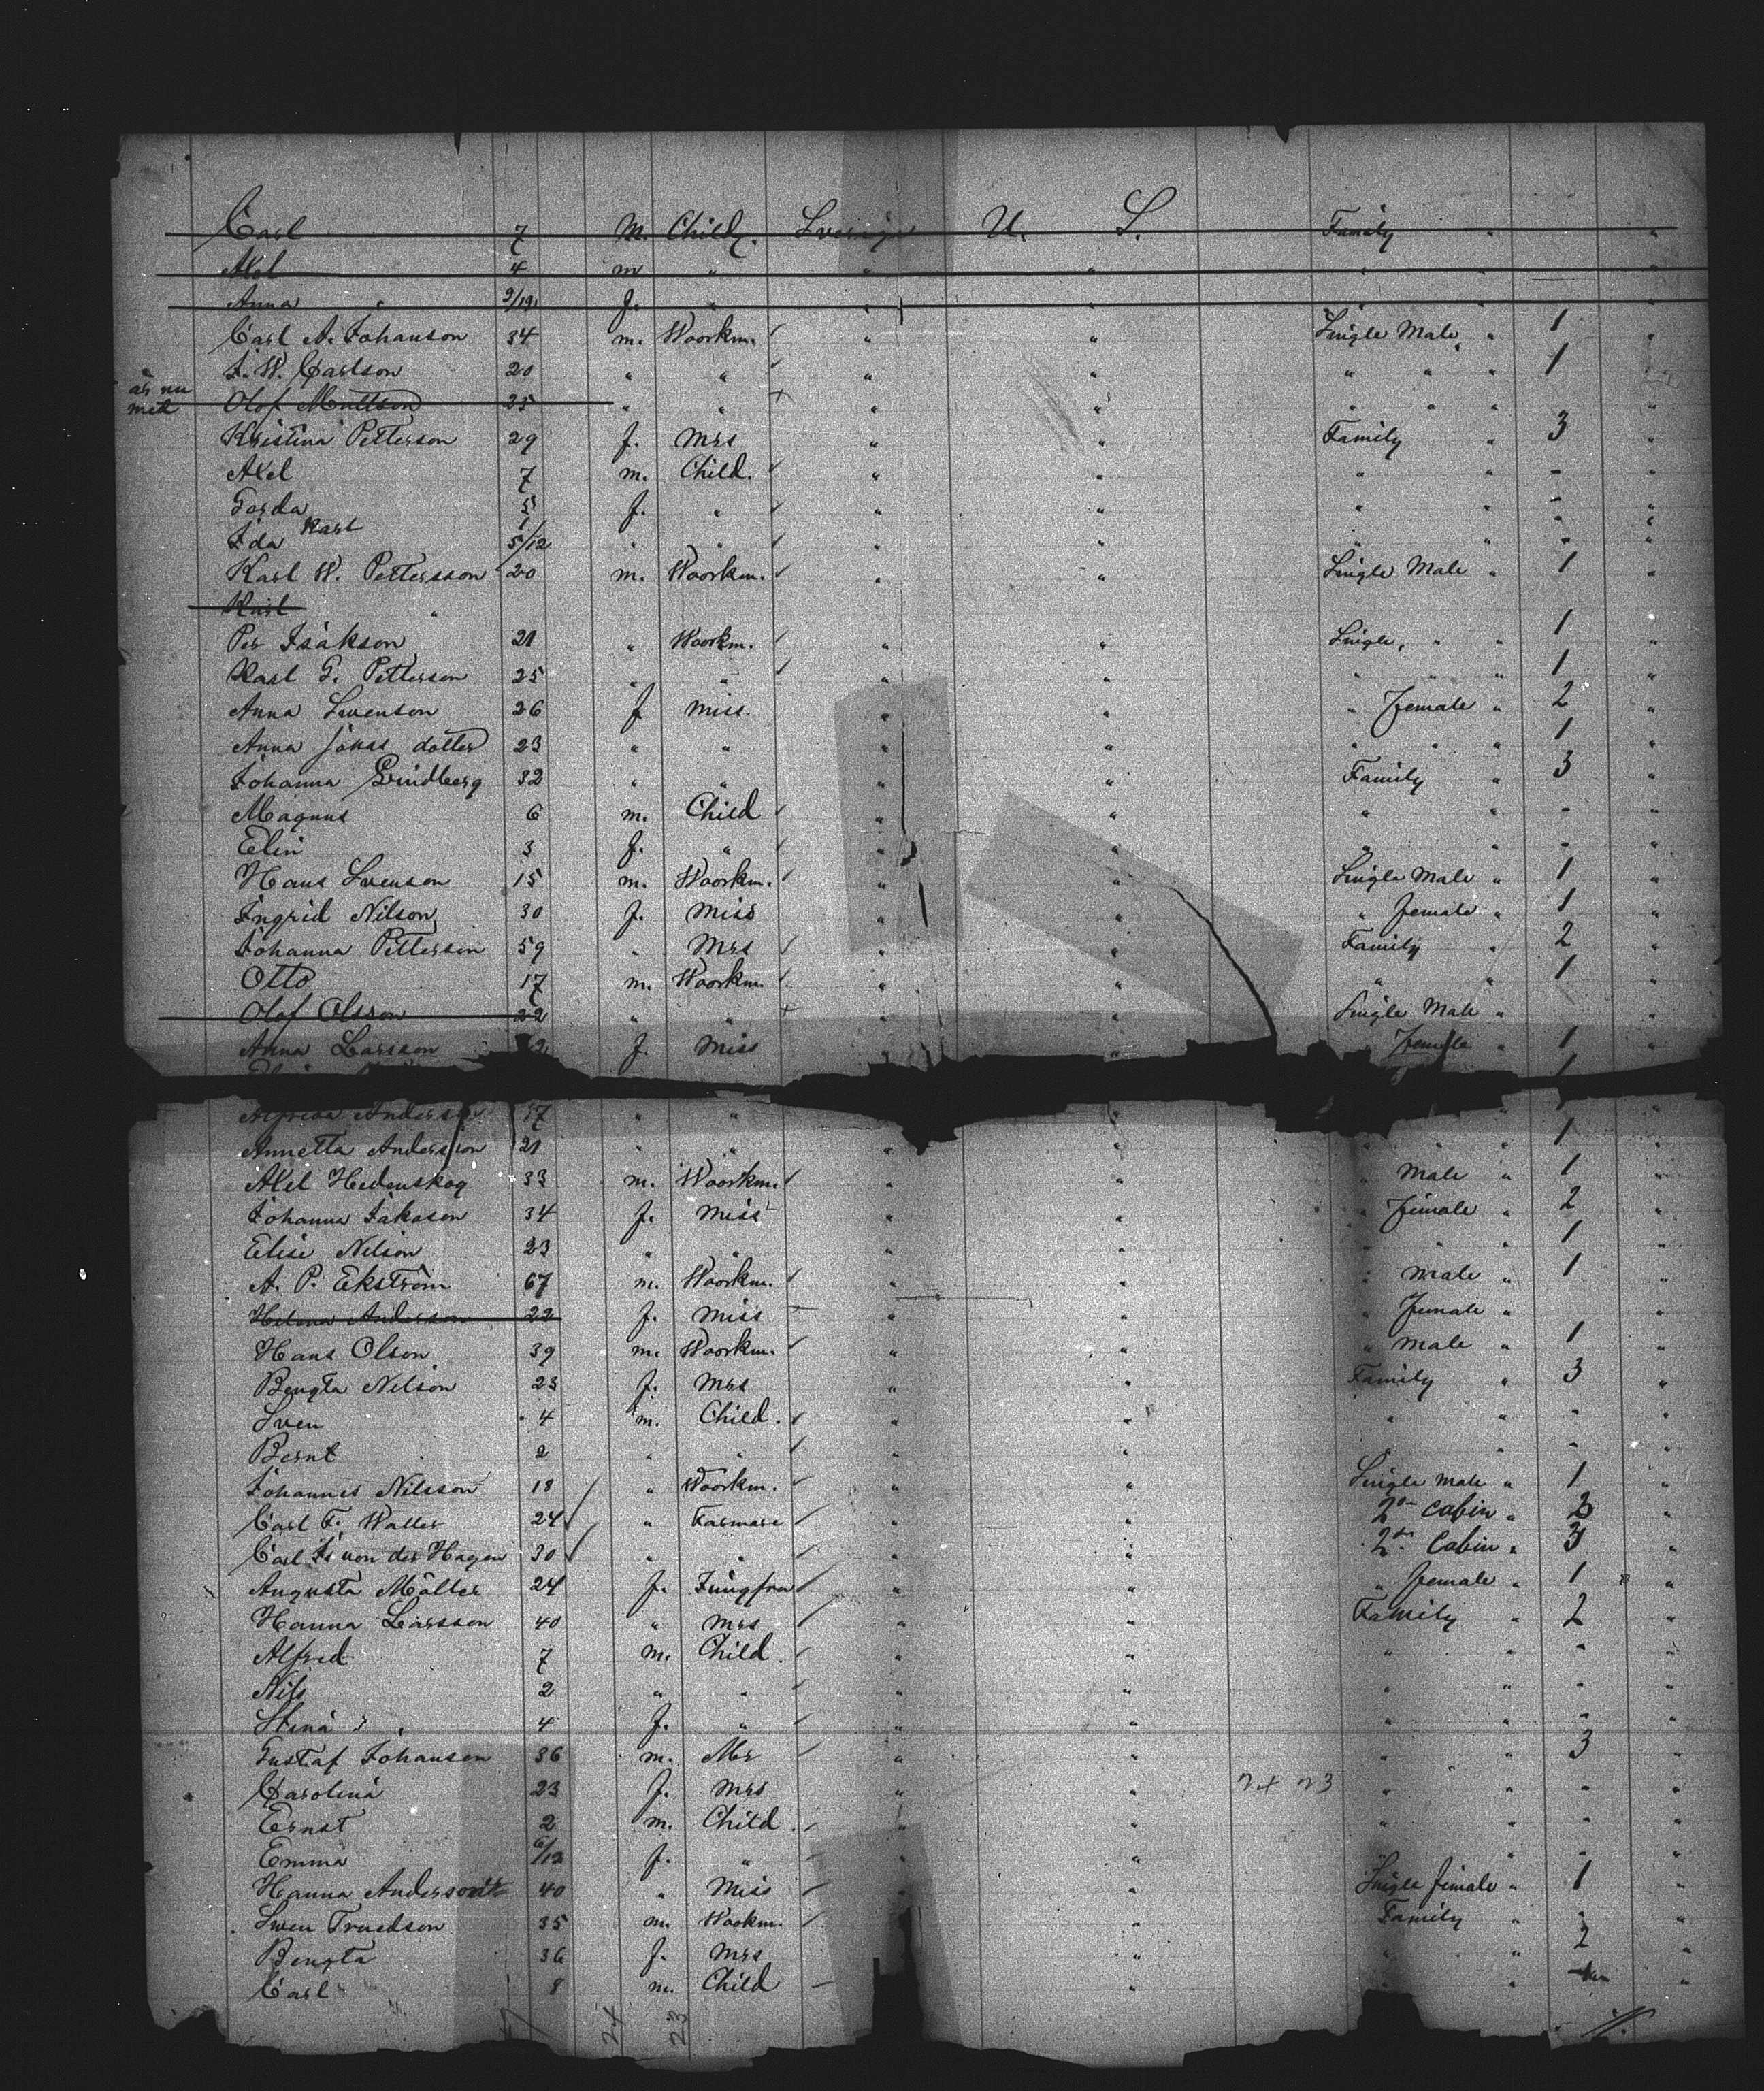 Carl 7 M. Child. Sverige U. S. Family " "
Axel 4 m " " " " " "
Anna " 9/12 f. " " " " " "
Carl A. Johanson 34 m. Woorkm. " " Single Male " 1 "
J. W. Carlson 20 " " " " " " " 1 "
är nu
med Olof Mattson 25 " " " " " " " "
Kristina Petterson 29 f. Mrs " " Family " 3 "
Axel 7 m. Child. " " " " - "
Gerda 5 f. " " " " " - "
Karl
Ida 5/12 " " " " " " - "
Karl W. Pettersson 20 m. Woorkm. " " Single Male " 1 "
Karl "
Per Isakson 21 " Woorkm. " " Single " " 1 "
Karl G. Petterson 25 " " " " " " " 1 "
Anna Svenson 26 f Miss. " " " female " 2 "
Anna Jonas dotter 23 " " " " " " " 1 "
Johanna Lindberg 32 " " " " Family " 3 "
Magnus 6 m. Child " " " " - "
Elin 3 f. " " " " " - "
Hans Svenson 15 m. Woorkm. " " Single Male " 1 "
Ingrid Nilson 30 f. Miss " " " female " 1 "
Johanna Petterson 59 " Mrs " " Family " 2 "
Otto 17 m. Woorkm. " " " " 1 "
Olof Olsson 22 " " + " " Single Male "
Anna Larsson f. Miss " " Female " 1 "
Anderson 17 " " "
Annetta Andersson 21 " " " " " " " 1 "
Axel Hedenskog 33 m. Woorkm. " " " Male " 1 "
Johanna Jakoson 34 f. Miss " " " Female " 2 "
Elise Nilson 23 " " " " " " " 1 "
A. P. Ekström 67 m. Woorkm. " " " Male " 1 "
Helena Anderson 22 f. Miss " " " Female " "
Hans Olson 39 m. Woorkm. " " " Male " 1 "
Bengta Nilson 23 f. Mrs " " Family " 3 "
Sven 4 m. Child. " " " " - "
Bernt 2 " " " " " " - "
Johannes Nilsson 18 " Woorkm. " " Single Male " 1 "
Carl F. Walter 24 " Farmare " " 2en Cabin " 3
Carl F. von der Hagen 30 " " " " 2en Cabin " 3 "
Augusta Möller 24 f. Jungfru " " " female " 1 "
Hanna Larsson 40 " Mrs " " Family " 2 "
Alfred 7 m. Child " " " " - "
Nils 2 " " " " " " - "
Stina 4 f. " " " " " - "
Gustaf Johanson 36 m. Mr " " " " 3 "
Carolina 23 f. Mrs " " 24 23 " " - "
Ernst 2 m. Child " " " " - "
Emma 6/12 f. " " " " " - "
Hanna Andersson 40 " Miss " " Single female " 1 "
Swen Truedson 35 m. Wookm. " " Family " - "
Bengta 36 f. Mrs " " " " 2 "
Carl 8 m. Child " " " "
24 23